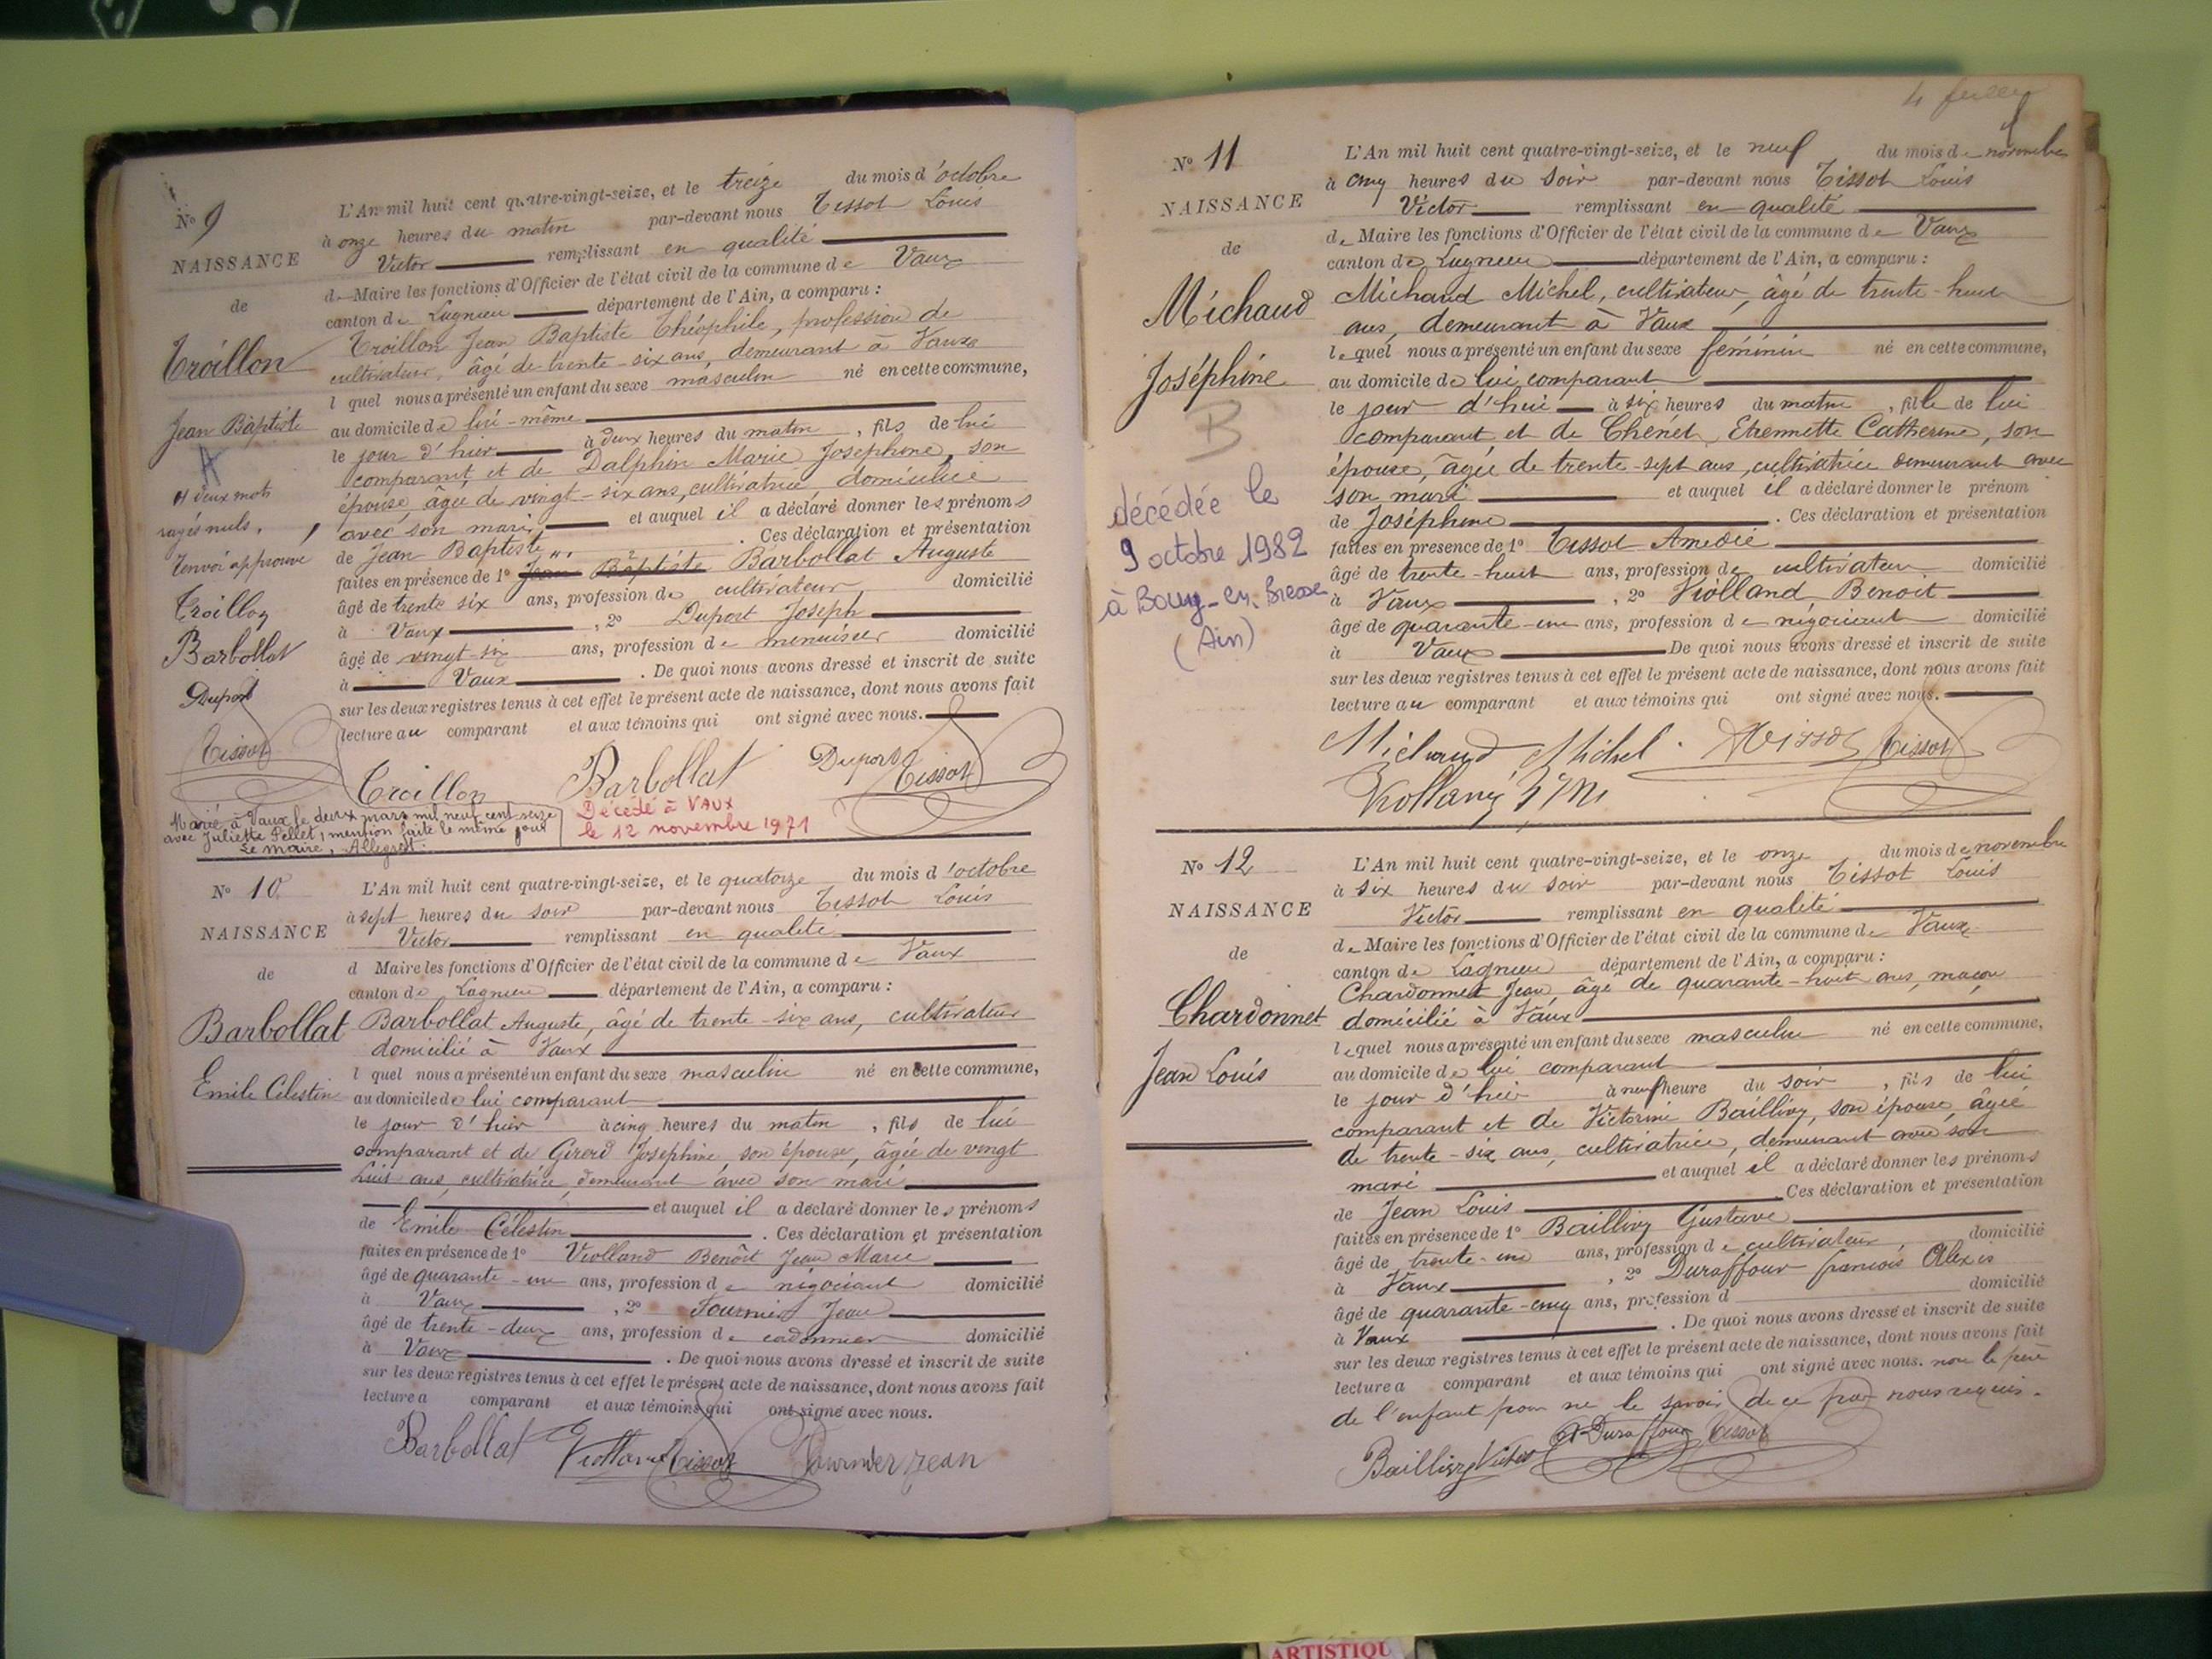 N° 9
NAISSANCE
de
Troillon
Jean Baptiste
deux mots
rayés nuls.
renvoi approuvé
Troillon
Barbollat
Duport
Tissot
L'An mil huit cent quatre-vingt-seize, et le treize du mois d'octobre
à onze heures du matin par-devant nous Tissot Louis
Victor remplissant en qualité
de Maire les fonctions d'Officier de l'état civil de la commune de Vaux
canton de Lagnieu département de l'Ain, a comparu :
Troillon Jean Baptiste Théophile, profession de
cultivateur, âgé de trente-six ans, demeurant à Vaux
l quel nous a présenté un enfant du sexe masculin né en cette commune,
au domicile de lui-même
le jour d'hier à deux heures du matin, fils de lui
comparant et de Dalphin Marie Joséphine, son
épouse, âgée de vingt-six ans, cultivatrice, domiciliée
avec son mari, et auquel il a déclaré donner les prénoms
de Jean Baptiste. Ces déclaration et présentation
faites en présence de 1° Jean Baptiste Barbollat Auguste
âgé de trente six ans, profession de cultivateur domicilié
à Vaux, 2° Duport Joseph
âgé de vingt-six ans, profession de menuisier domicilié
à Vaux. De quoi nous avons dressé et inscrit de suite
sur les deux registres tenus à cet effet le présent acte de naissance, dont nous avons fait
lecture au comparant et aux témoins qui ont signé avec nous.
Troillon Barbollat Duport Tissot
Marié à Vaux le deux mars mil neuf cent seize
avec Juliette Pellet, mention faite le même jour
Le maire, Allegret.
Décédé à VAUX
le 12 novembre 1971
N° 10
NAISSANCE
de
Barbollat
Emile Célestin
L'An mil huit cent quatre-vingt-seize, et le quatorze du mois d'octobre
à sept heures du soir par-devant nous Tissot Louis
Victor remplissant en qualité
d Maire les fonctions d'Officier de l'état civil de la commune de Vaux
canton de Lagnieu département de l'Ain, a comparu :
Barbollat Auguste, âgé de trente-six ans, cultivateur
domicilié à Vaux
l quel nous a présenté un enfant du sexe masculin né en cette commune,
au domicile de lui comparant
le jour d'hier à cinq heures du matin, fils de lui
comparant et de Girerd Joséphine, son épouse, âgée de vingt
huit ans, cultivatrice, demeurant avec son mari
et auquel il a déclaré donner les prénoms
de Emile Célestin. Ces déclaration et présentation
faites en présence de 1° Violland Benoît Jean Marie
âgé de quarante-un ans, profession de négociant domicilié
à Vaux, 2° Fournier Jean
âgé de trente-deux ans, profession de cordonnier domicilié
à Vaux. De quoi nous avons dressé et inscrit de suite
sur les deux registres tenus à cet effet le présent acte de naissance, dont nous avons fait
lecture a comparant et aux témoins qui ont signé avec nous.
Barbollat Violland Tissot Fournier Jean
N° 11
NAISSANCE
de
Michaud
Joséphine
B
décédée le
9 octobre 1982
à Bourg-en-Bresse
(Ain)
L'An mil huit cent quatre-vingt-seize, et le neuf du mois de novembre
à cinq heures du soir par-devant nous Tissot Louis
Victor remplissant en qualité
de Maire les fonctions d'Officier de l'état civil de la commune de Vaux
canton de Lagnieu département de l'Ain, a comparu :
Michaud Michel, cultivateur, âgé de trente-huit
ans, demeurant à Vaux
lequel nous a présenté un enfant du sexe féminin né en cette commune,
au domicile de lui comparant
le jour d'hui à six heures du matin, fille de lui
comparant et de Chenet, Etiennette Catherine, son
épouse, âgée de trente-sept ans, cultivatrice demeurant avec
son mari et auquel il a déclaré donner le prénom
de Joséphine. Ces déclaration et présentation
faites en présence de 1° Tissot Amédée
âgé de trente-huit ans, profession de cultivateur domicilié
à Vaux, 2° Violland Benoit
âgé de quarante-un ans, profession de négociant domicilié
à Vaux De quoi nous avons dressé et inscrit de suite
sur les deux registres tenus à cet effet le présent acte de naissance, dont nous avons fait
lecture au comparant et aux témoins qui ont signé avec nous.
Michaud Michel. Tissot Tissot
N° 12
NAISSANCE
de
Chardonnet
Jean Louis
L'An mil huit cent quatre-vingt-seize, et le onze du mois de novembre
à six heures du soir par-devant nous Tissot Louis
Victor remplissant en qualité
de Maire les fonctions d'Officier de l'état civil de la commune de Vaux
canton de Lagnieu département de l'Ain, a comparu :
Chardonnet Jean, âgé de quarante-huit ans, maçon
domicilié à Vaux
lequel nous a présenté un enfant du sexe masculin né en cette commune,
au domicile de lui comparant
le jour d'hier à neuf heure du soir, fils de lui
comparant et de Victorine Baillivy, son épouse, âgée
de trente-six ans, cultivatrice, demeurant avec son
mari et auquel il a déclaré donner les prénoms
de Jean Louis Ces déclaration et présentation
faites en présence de 1° Baillivy Gustave
âgé de trente-un ans, profession de cultivateur, domicilié
à Vaux, 2° Duraffour françois Alexis
âgé de quarante-cinq ans, profession d domicilié
à Vaux. De quoi nous avons dressé et inscrit de suite
sur les deux registres tenus à cet effet le présent acte de naissance, dont nous avons fait
lecture a comparant et aux témoins qui ont signé avec nous. non le père
de l'enfant pour ne le savoir de ce par nous requis.
Baillivy Duraffour Tissot
ARTISTIQU